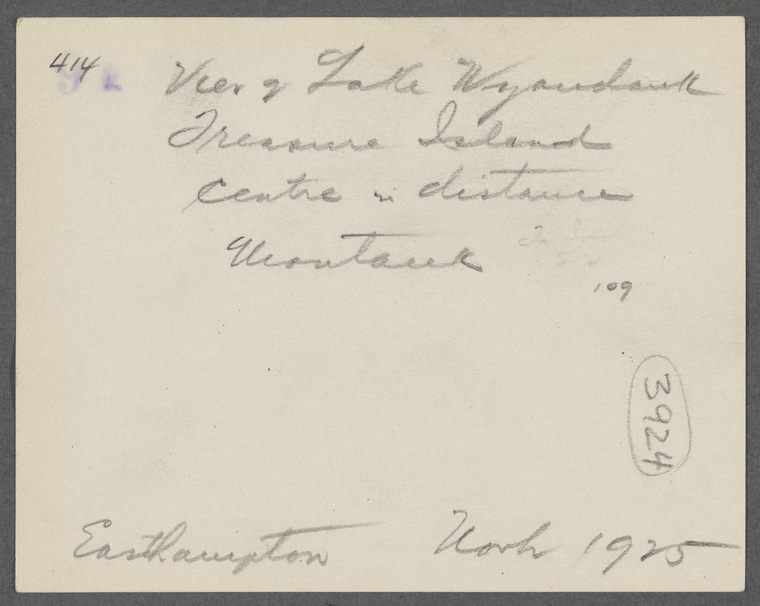 414
View of Lake Wyandank
Treasure Island
Centre in distance
Montauk
109
3924
Easthampton 1925